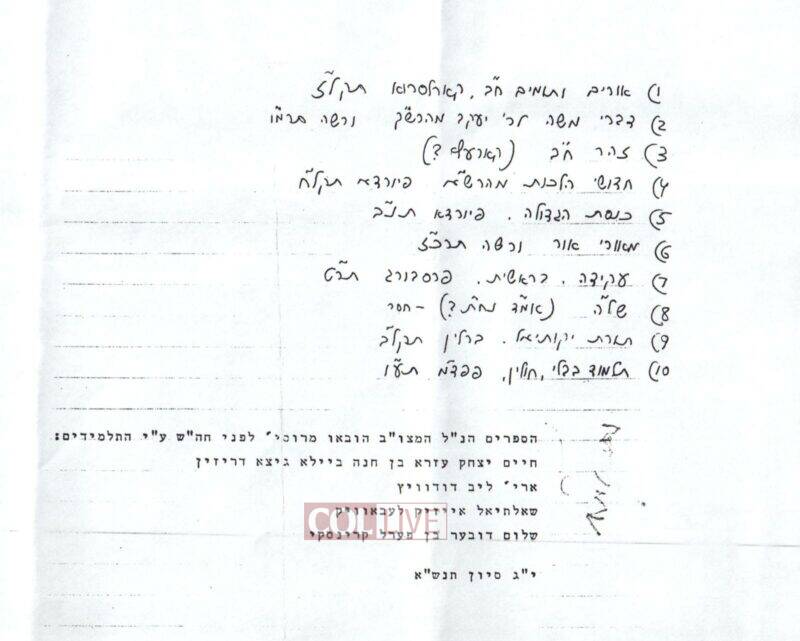 1) אורים ותומים ח"ב. קארלסרוא תקל"ז
2) דברי משה לר' יעקב מהרש"ק ורשה תרמ"ו
3) זהר ח"ב (קארעץ?)
4) חדושי הלכות מהרש"א פיורדא תקל"ח
5) כנסת הגדולה. פיורדא תנ"ב
6) מאורי אור ורשה תרכ"ז
7) עקידה. בראשית. פרסבורג תר"ט
8) של"ה (אמ"ד נח"ת?) - חסר
9) תורת יקותיאל. ברלין תקל"ב
10) תלמוד בבלי, חולין, פפד"מ תע"ו
הספרים הנ"ל המצו"ב הובאו מרוסי' לפני חה"ש ע"י התלמידים:
חיים יצחק עזרא בן חנה ביילא גיצא דריזין
ארי' ליב דודוויץ
שאלתיאל אייזיק לעבאוויק
שלום דובער בן פערל קרינסקי
COLLIVE
י"ג סיון תנש"א